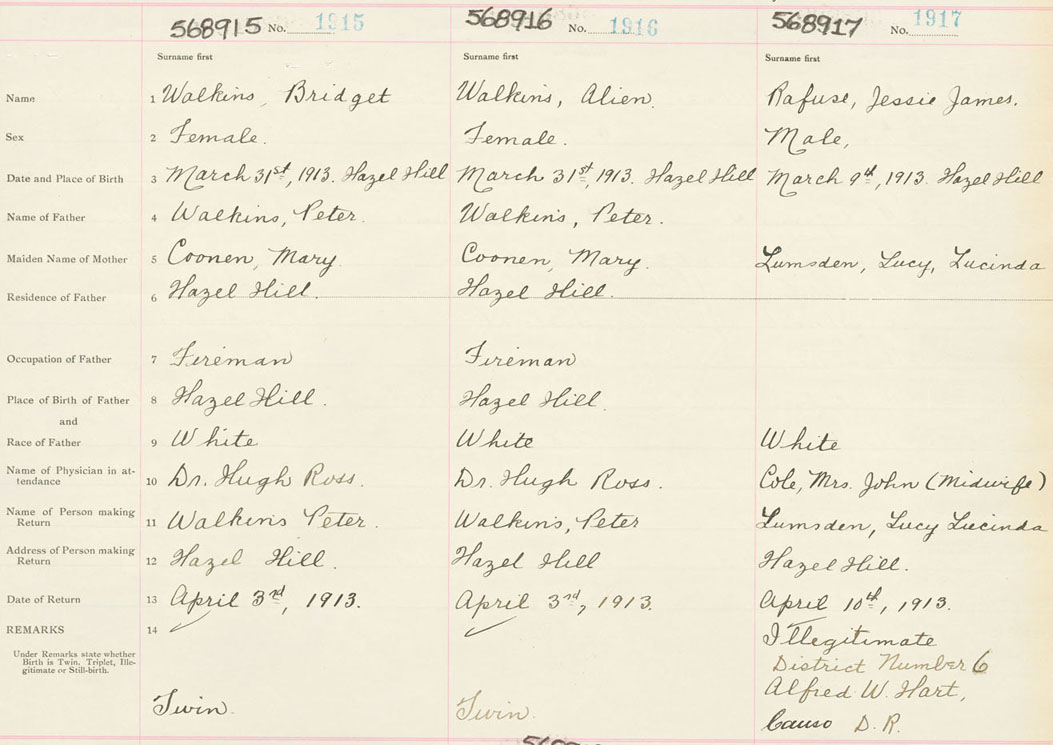 568915 No. 1915 568916 No. 1916 568917 No. 1917
Surname first Surname first Surname first
Name 1 Walkins, Bridget Walkins, Alien. Rafuse, Jessie James.
Sex 2 Female. Female. Male,
Date and Place of Birth 3 March 31st, 1913. Hazel Hill March 31st, 1913. Hazel Hill March 9th, 1913. Hazel Hill
Name of Father 4 Walkins, Peter. Walkins, Peter.
Maiden Name of Mother 5 Coonen, Mary. Coonen, Mary. Lumsden, Lucy, Lucinda
Residence of Father 6 Hazel Hill. Hazel Hill.
Occupation of Father 7 Fireman Fireman
Place of Birth of Father 8 Hazel Hill. Hazel Hill.
and
Race of Father 9 White White White
Name of Physician in at-
tendance 10 Dr. Hugh Ross. Dr. Hugh Ross. Cole, Mrs. John (Midwife)
Name of Person making
Return 11 Walkins Peter. Walkins, Peter Lumsden, Lucy Lucinda
Address of Person making
Return 12 Hazel Hill. Hazel Hill Hazel Hill.
Date of Return 13 April 3rd, 1913. April 3rd, 1913. April 10th, 1913.
REMARKS 14 Illegitimate
Under Remarks state whether
Birth is Twin, Triplet, Ille-
gitimate or Still-birth.
District Number 6
Alfred W. Hart,
Twin. Twin. Canso D. R.